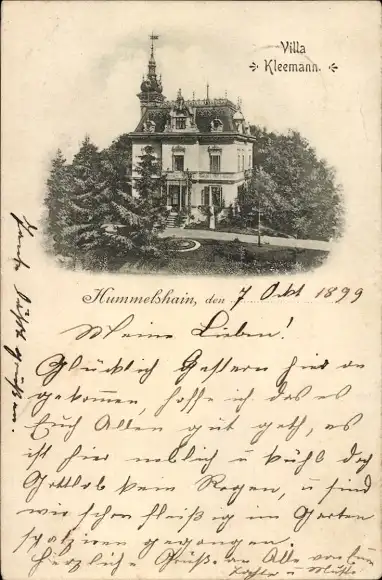 Villa
Kleemann.
Hummelshain, den 7 Okt 1899
Meine Lieben!
Glücklich Gestern hier an
gekommen, hoffe ich das es
Euch Allen gut geth, es
ist hier neblich u kühl doch
Gottlob kein Regen, u sind
wir schon fleißig im Garten
spatziren gegangen.
Herzliche Grüß an Alle von
Tochter u